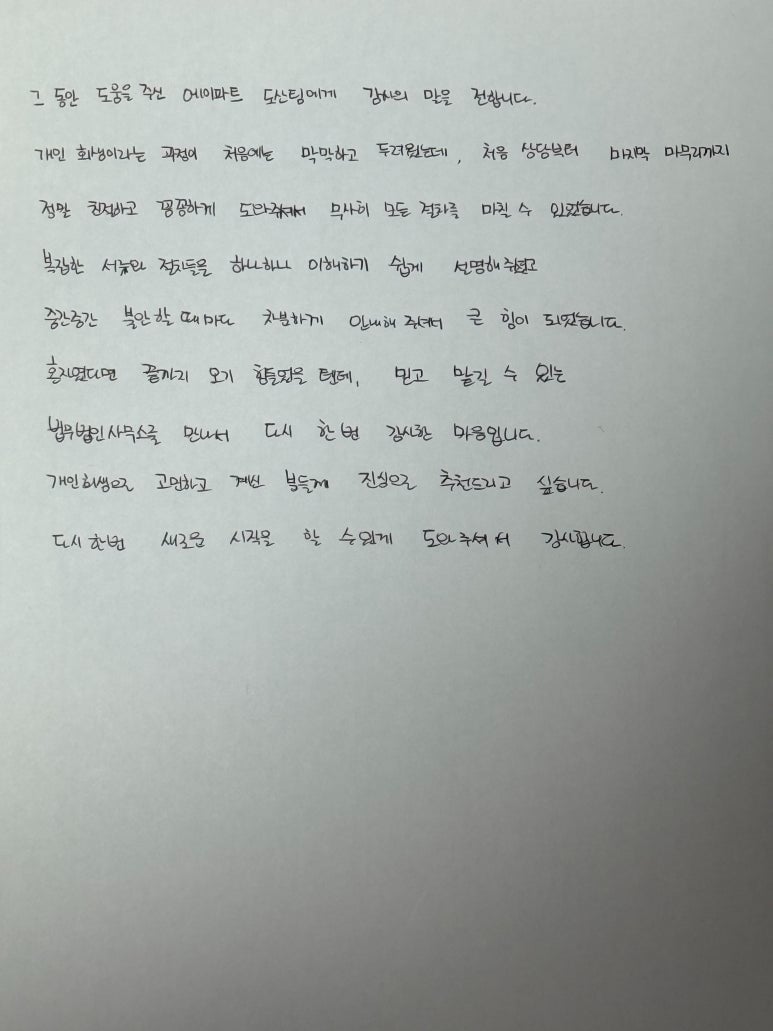 그 동안 도움을 주신 에이파트 도산팀에게 감사의 말을 전합니다.
개인 회생이라는 과정이 처음에는 막막하고 두려웠는데, 처음 상담부터 마지막 마무리까지
정말 친절하고 꼼꼼하게 도와주셔서 무사히 모든 절차를 마칠 수 있었습니다.
복잡한 서류와 절차들을 하나하나 이해하기 쉽게 설명해주셨고
중간중간 불안할 때마다 차분하게 안내해 주셔서 큰 힘이 되었습니다.
혼자였다면 끝까지 오기 힘들었을 텐데, 믿고 맡길 수 있는
법무법인사무소를 만나서 다시 한번 감사한 마음입니다.
개인회생으로 고민하고 계신 분들께 진심으로 추천드리고 싶습니다.
다시 한번 새로운 시작을 할 수있게 도와주셔서 감사합니다.